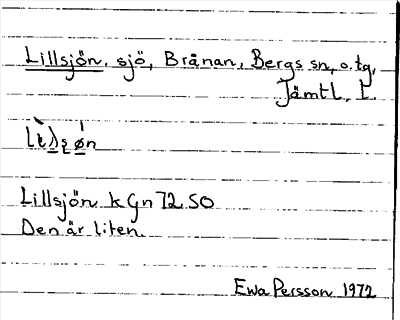 Lillsjön, sjö, Brånan, Bergs sn, o. tg,
Jämtl. L.
Lillsjön k Gn 72 SO
Den är liten.
Ewa Persson 1972